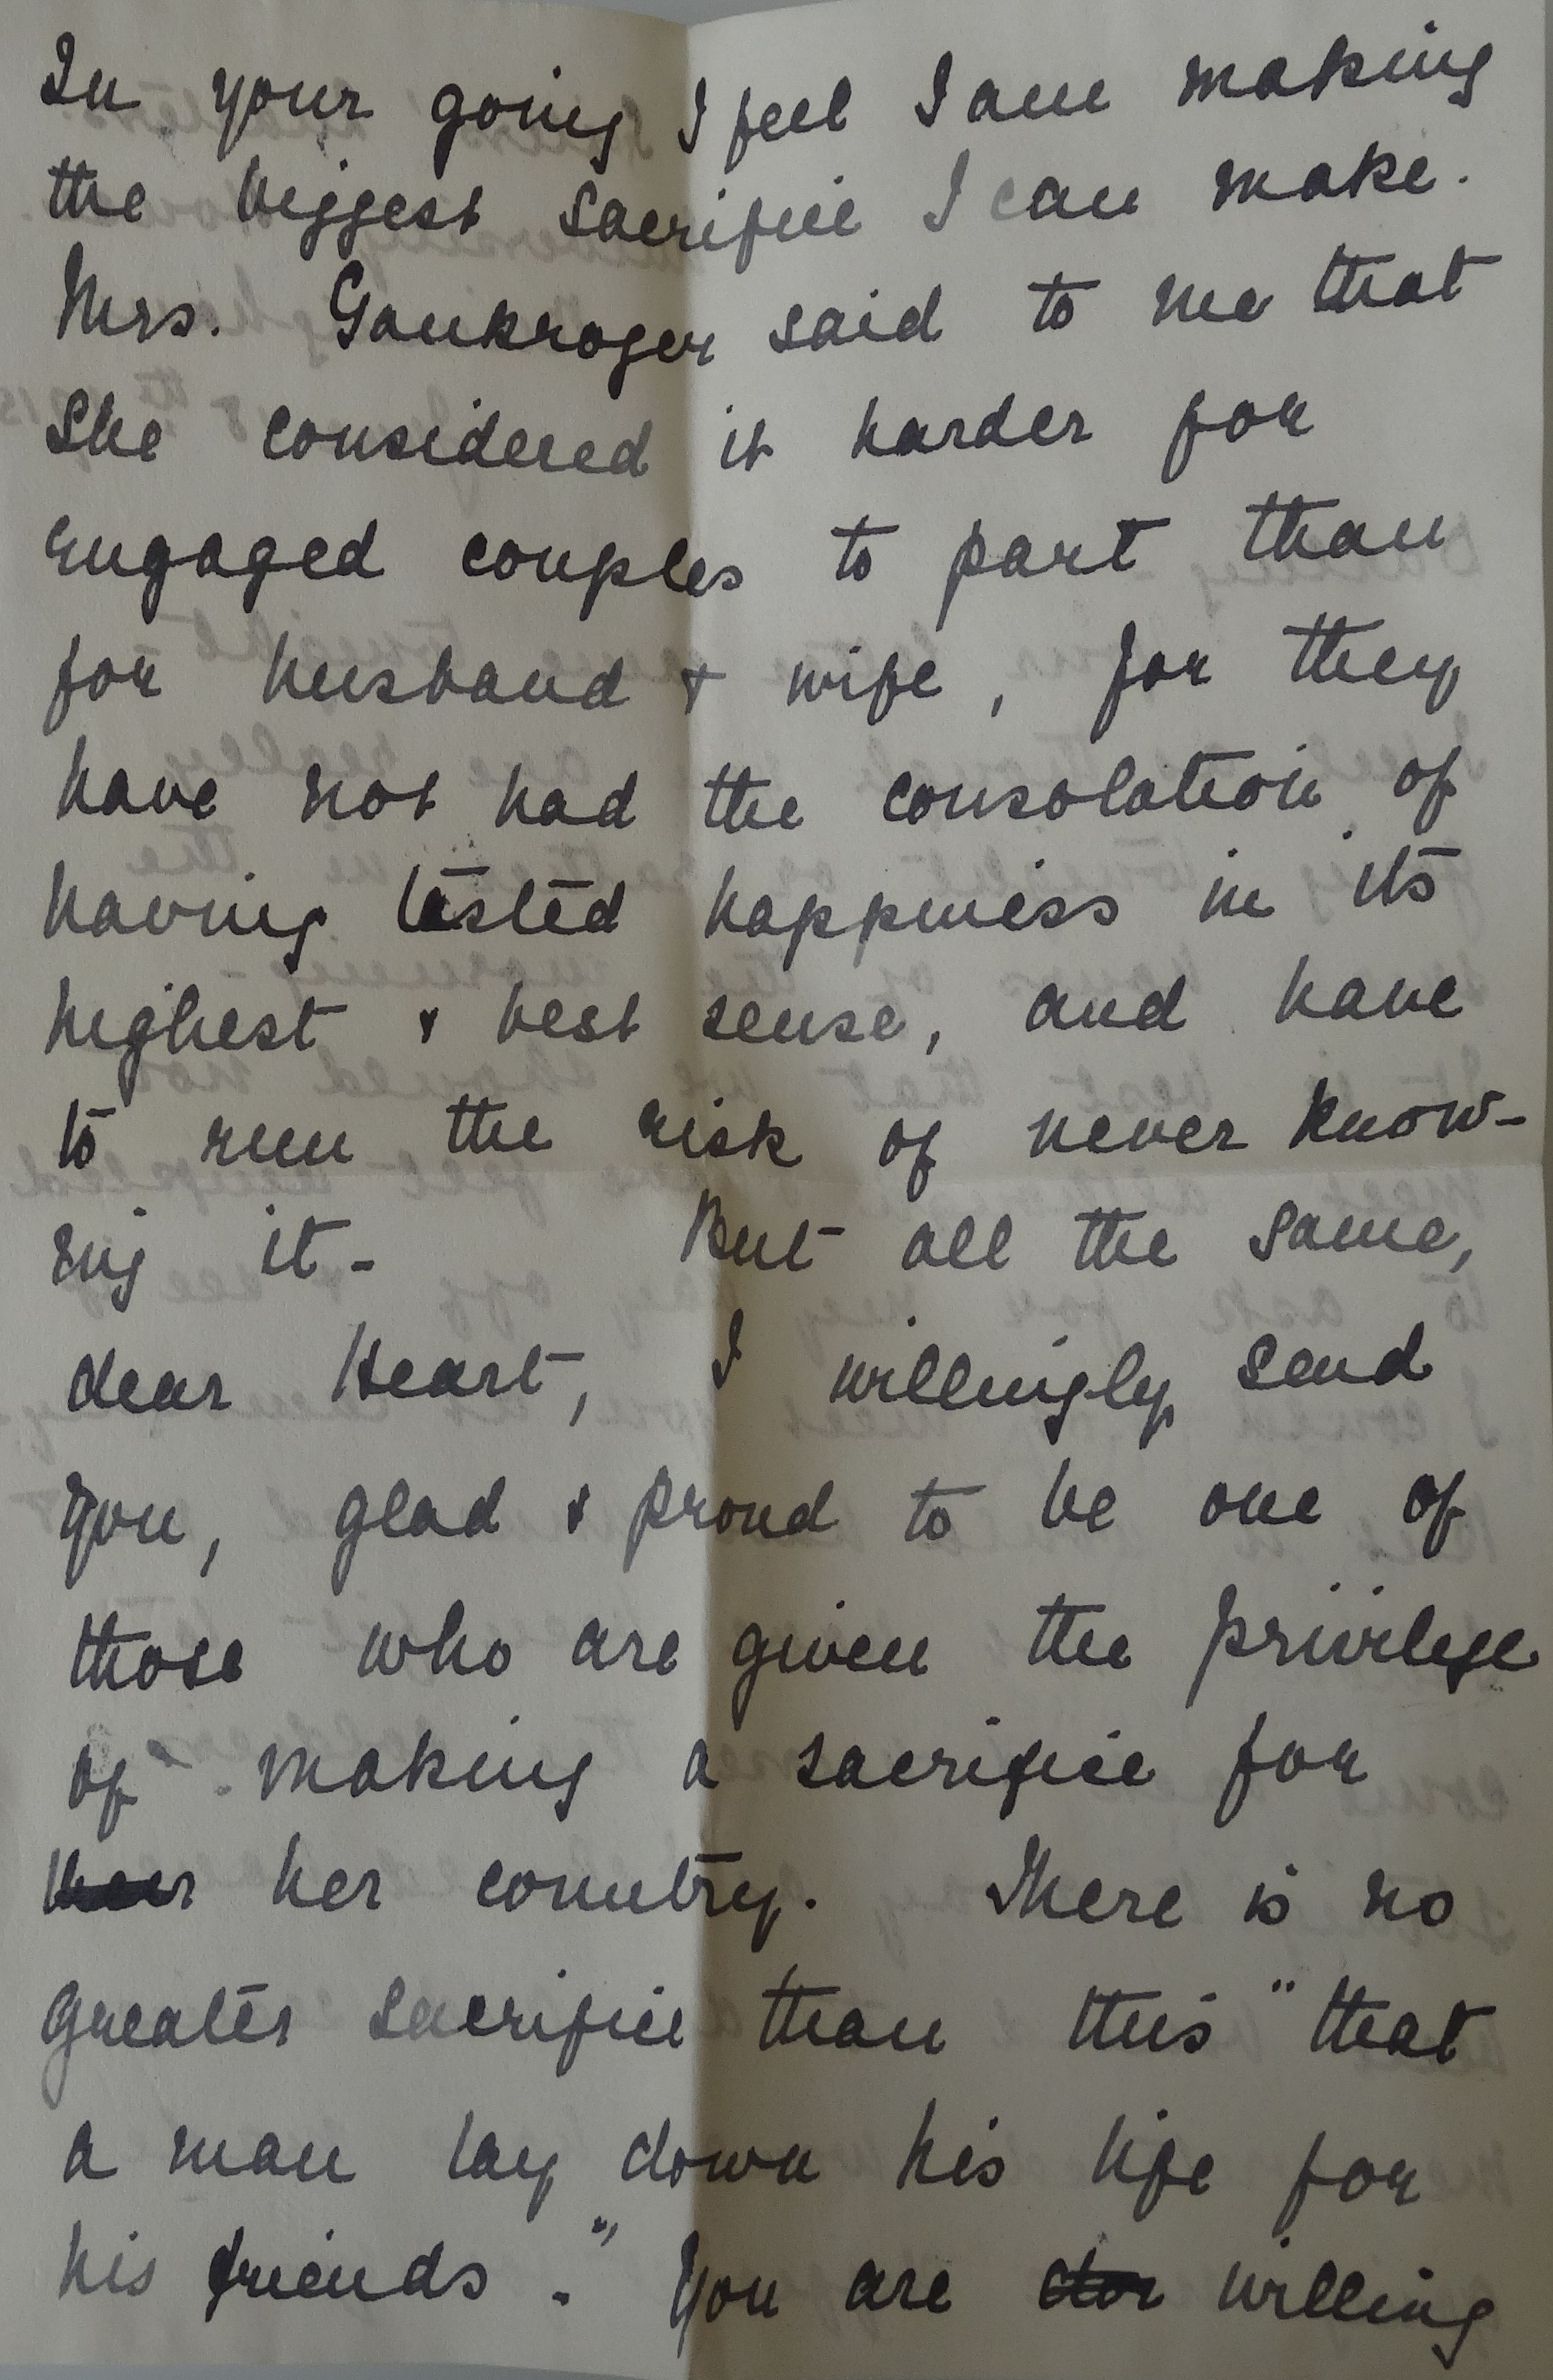 In your going I feel I am making
the biggest sacrifice I can make.
Mrs. Gaukroger said to me that
She considered it harder for
engaged couples to part than
for husband & wife, for they
have not had the consolation of
having tasted happiness in its
highest & best sense, and have
to run the risk of never know-
ing it - But all the same,
dear Heart, I willingly send
you, glad & proud to be one of
those who are given the privilege
of making a sacrifice for
their her country. There is no
greater sacrifice than this "that
a man lay down his life for
his friends." You are willing